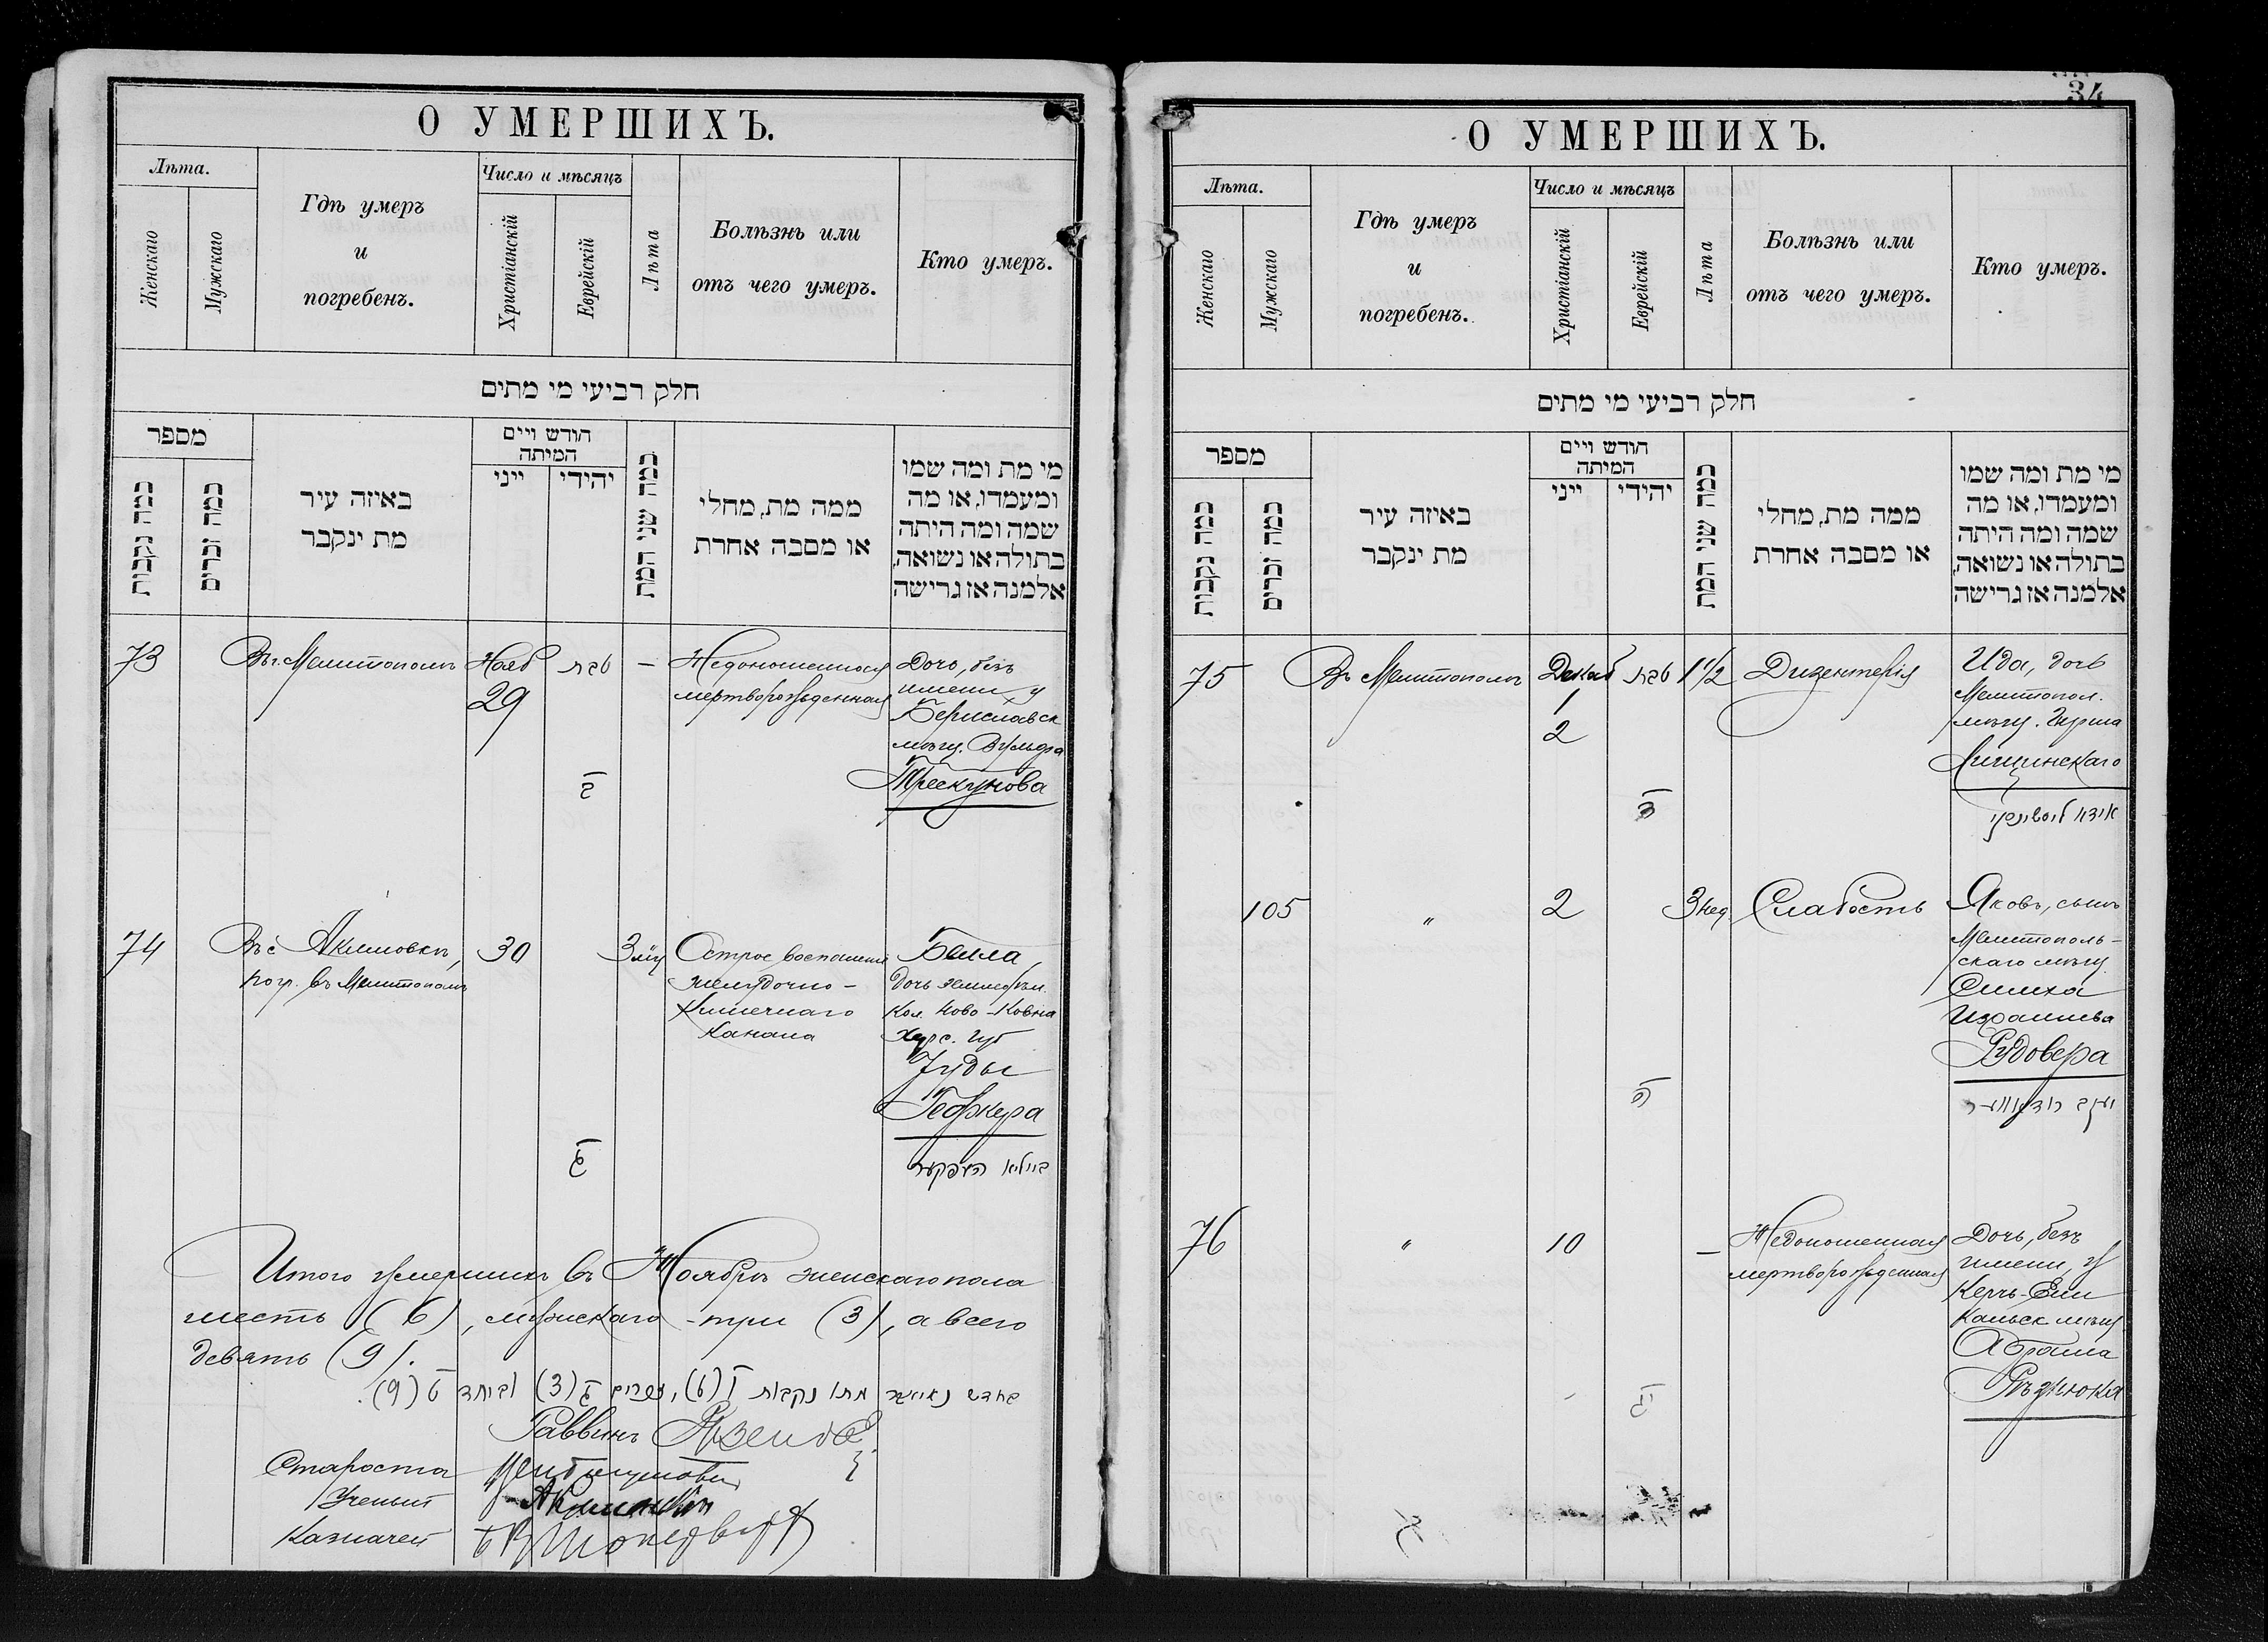 О УМЕРШИХЪ.
Лѣта.
Женскаго
Мужскаго
Гдѣ умеръ
и
погребенъ.
Число и мѣсяцъ
Христіанскій
Еврейскій
Лѣта
Болѣзнь или
отъ чего умеръ.
Кто умеръ.
חלק רביעי מי מתים
מספר
כמה נקבות
כמה זכרים
באיזה עיר
מת ינקבר
חודש ויים
המיתה
ייני
יהודי
כמה שני המת
ממה מת, מחלי
או מסבה אחרת
מי מת ומה שמו
ומעמדו, או מה
שמה ומה היתה
בתולה או נשואה,
אלמנה אז גרישה
73
Въ г. Мелитополѣ
Нояб
29
טבת
—
Недоношенная
мертворожденная
Дочь, безъ
имени, у
Бериславск
мѣщ. Вульфа
Трескунова
74
Въ с Акимовкѣ,
погр. въ Мелитополѣ
30
ג
Острое воспаленіе
желудочно-
кишечнаго
канала
Бейла,
дочь
Кол. Ново-Ковна
Херс. губ
Іуды
Гефкера
ביילא העפקער
Итого умершихъ въ Ноябрѣ женскаго пола
шесть (6), мужскаго - три (3), а всего
девять (9).
בחדש נאיאבר מתו נקבות ו (6), זכרים ג (3) וביחד ט (9).
Раввинъ
Староста
Ученый
Казначей
34
О УМЕРШИХЪ.
Лѣта.
Женскаго
Мужскаго
Гдѣ умеръ
и
погребенъ.
Число и мѣсяцъ
Христіанскій
Еврейскій
Лѣта
Болѣзнь или
отъ чего умеръ.
Кто умеръ.
חלק רביעי מי מתים
מספר
כמה נקבות
כמה זכרים
באיזה עיר
מת ינקבר
חודש ויים
המיתה
ייני
יהודי
כמה שני המת
ממה מת, מחלי
או מסבה אחרת
מי מת ומה שמו
ומעמדו, או מה
שמה ומה היתה
בתולה או נשואה,
אלמנה אז גרישה
75
Въ Мелитополѣ
Декаб
1
2
טבת
1 1/2
Дизентерія
Ида, дочь
Мелитопол.
мѣщ. Гирша
Лищинскаго
אידא לישצינסקי
105
"
2
ה
3 нед.
Слабость
Яковъ, сынъ
Мелитополь-
скаго мѣщ.
Симха
Израилева
Рудовера
יעקב רודאווער
76
"
10
—
Недоношенная
мертворожденная
Дочь, безъ
имени, у
Керчь-Ени
кальск. мѣщ.
Абрама
Рѣзнюка